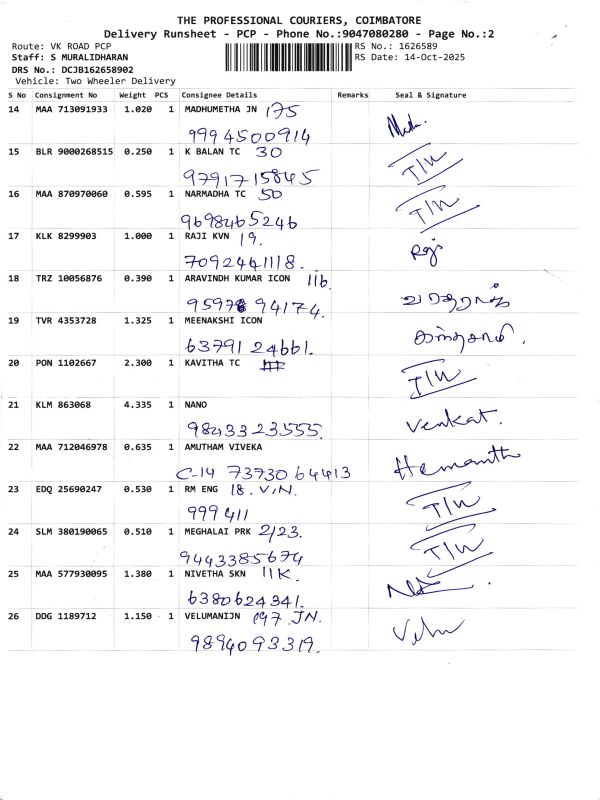 THE PROFESSIONAL COURIERS, COIMBATORE
Delivery Runsheet - PCP - Phone No.:9047080280 - Page No.:2
Route: VK ROAD PCP RS No.: 1626589
Staff: S MURALIDHARAN RS Date: 14-Oct-2025
DRS No.: DCJB162658902
Vehicle: Two Wheeler Delivery
S No Consignment No Weight PCS Consignee Details Remarks Seal & Signature
14 MAA 713091933 1.020 1 MADHUMETHA JN 175
9994500914
15 BLR 9000268515 0.250 1 K BALAN TC 30 T/W
9791715845
16 MAA 870970060 0.595 1 NARMADHA TC 50 T/W
9698465246
17 KLK 8299903 1.000 1 RAJI KVN 19. Raji
7092441118.
18 TRZ 10056876 0.390 1 ARAVINDH KUMAR ICON 11b
95978 94174.
19 TVR 4353728 1.325 1 MEENAKSHI ICON
63791 24661.
20 PON 1102667 2.300 1 KAVITHA TC T/W
21 KLM 863068 4.335 1 NANO Venkat.
98433 23555.
22 MAA 712046978 0.635 1 AMUTHAM VIVEKA Hemanth
C-14 73730 64413
23 EDQ 25690247 0.530 1 RM ENG 18. V.N. T/W
999411
24 SLM 380190065 0.510 1 MEGHALAI PRK 2/23. T/W
9443385674
25 MAA 577930095 1.380 1 NIVETHA SKN 11K.
6380624341.
26 DDG 1189712 1.150 1 VELUMANIJN 197 JN. Velu
9894093319.